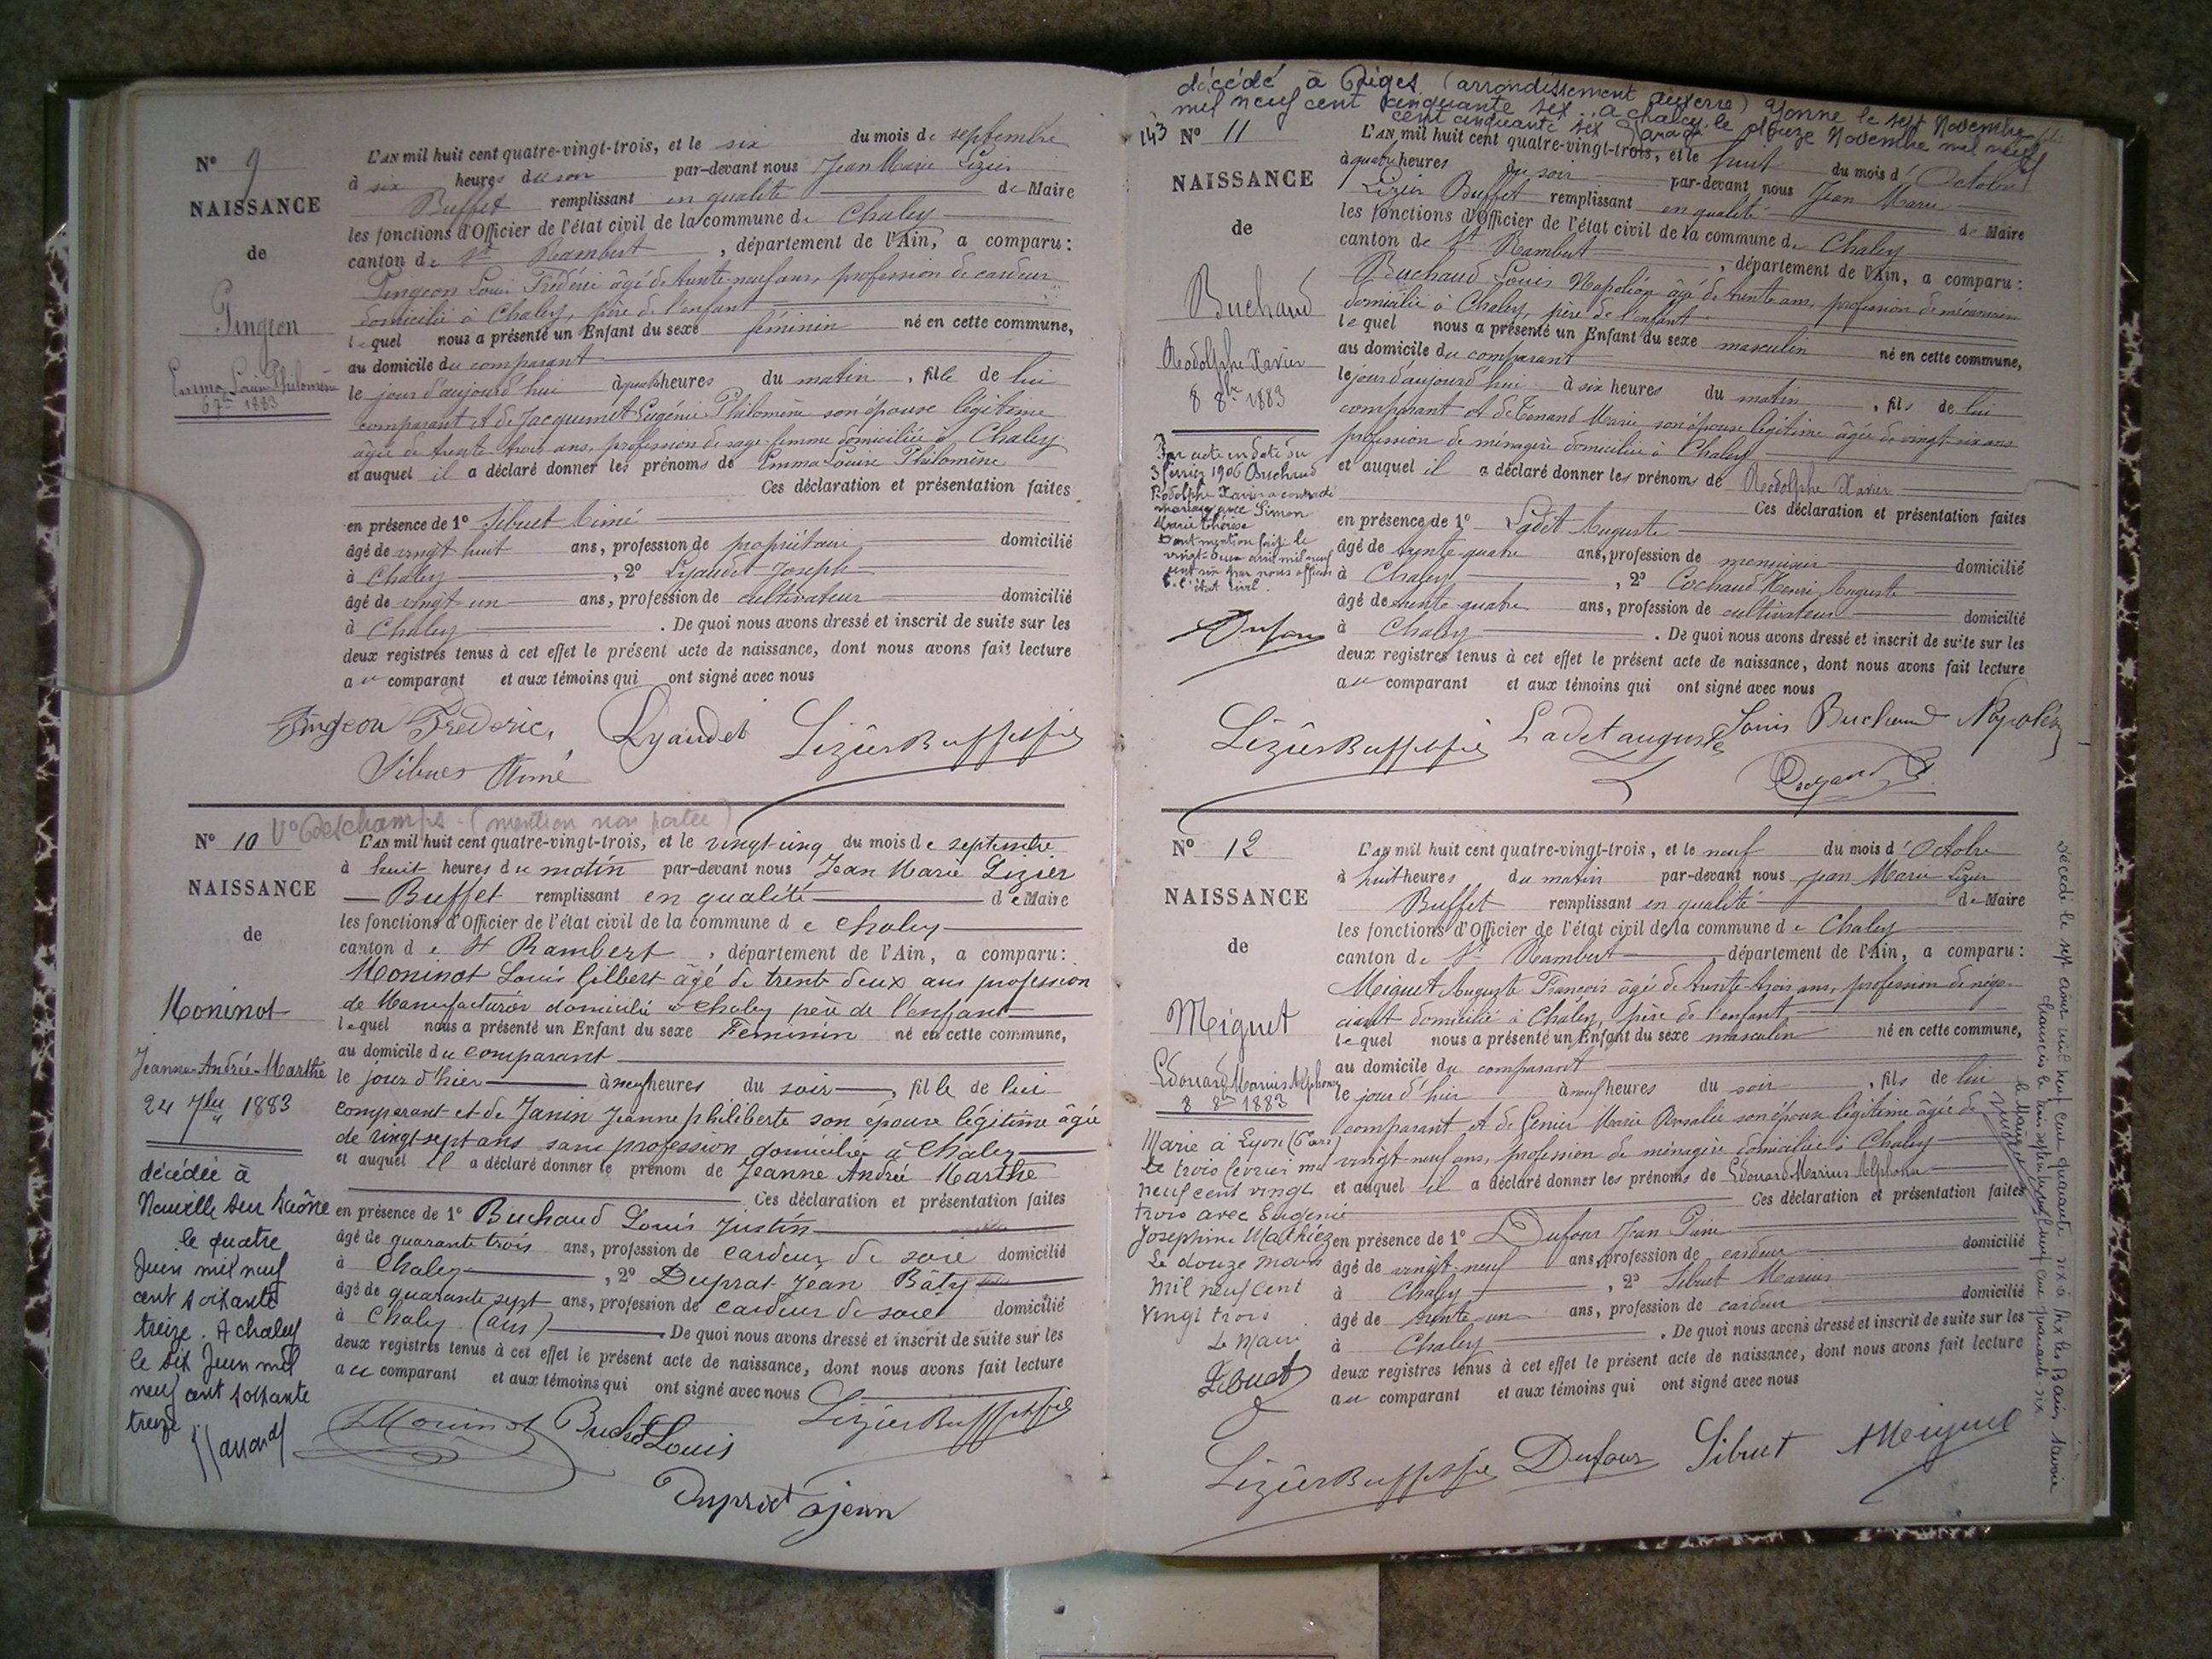 N° 9
NAISSANCE
de
Pingeon
Emma Louise Philomène
6 7bre 1883
L'AN mil huit cent quatre-vingt-trois, et le six du mois de septembre
à six heures du soir par-devant nous Jean Marie Lizier
Buffet remplissant en qualité de Maire
les fonctions d'Officier de l'état civil de la commune de Chaley
canton de St Rambert, département de l'Ain, a comparu :
Pingeon Louis Frédéric âgé de trente-neuf ans, profession de cardeur
domicilié à Chaley, père de l'enfant
lequel nous a présenté un Enfant du sexe féminin né en cette commune,
au domicile du comparant
le jour d'aujourd'hui à quatre heures du matin, fille de lui
comparant et de Jacquemet Eugénie Philomène son épouse légitime
âgée de trente trois ans, profession de sage-femme domiciliée à Chaley
et auquel il a déclaré donner les prénoms de Emma Louise Philomène
Ces déclaration et présentation faites
en présence de 1° Sibuet Aimé
âgé de vingt huit ans, profession de propriétaire domicilié
à Chaley, 2° Lyaudet Joseph
âgé de vingt-un ans, profession de cultivateur domicilié
à Chaley. De quoi nous avons dressé et inscrit de suite sur les
deux registres tenus à cet effet le présent acte de naissance, dont nous avons fait lecture
au comparant et aux témoins qui ont signé avec nous
Pingeon Frédéric, Lyaudet Lizier Buffet
Sibuet Aimé
V° Deschamps - (mention non portée)
N° 10
NAISSANCE
de
Moninot
Jeanne-André-Marthe
24 7bre 1883
décédée à
Neuville sur Saône
le quatre
Juin mil neuf
cent soixante
treize. A chaley
le six Juin mil
neuf cent soixante
treize
L'AN mil huit cent quatre-vingt-trois, et le vingt-cinq du mois de septembre
à huit heures du matin par-devant nous Jean Marie Lizier
Buffet remplissant en qualité de Maire
les fonctions d'Officier de l'état civil de la commune de Chaley
canton de St Rambert, département de l'Ain, a comparu :
Moninot Louis Gilbert âgé de trente deux ans profession
de Manufacturier domicilié à Chaley père de l'enfant
lequel nous a présenté un Enfant du sexe Féminin né en cette commune,
au domicile du comparant
le jour d'hier à neuf heures du soir, fille de lui
comparant et de Janin Jeanne philiberte son épouse légitime âgée
de vingt-sept ans sans profession domicilié à Chaley
et auquel il a déclaré donner le prénom de Jeanne André Marthe
Ces déclaration et présentation faites
en présence de 1° Buchaud Louis Justin
âgé de quarante trois ans, profession de cardeur de soie domicilié
à Chaley, 2° Duprat Jean Baty
âgé de quarante sept ans, profession de cardeur de soie domicilié
à Chaley (ain). De quoi nous avons dressé et inscrit de suite sur les
deux registres tenus à cet effet le présent acte de naissance, dont nous avons fait lecture
au comparant et aux témoins qui ont signé avec nous
Moninot Buchod Louis Lizier Buffet
Duprat jean
décédé à (arrondissement auxerre) Yonne le sept Novembre
mil neuf cent cinquante six. A chaley le douze Novembre mil neuf
cent cinquante six
143
N° 11
NAISSANCE
de
Buchaud
Rodolphe Xavier
8 8bre 1883
Par acte en date du
3 février 1906 Buchaud
Rodolphe Xavier a contracté
mariage avec Simon
Marie Thérèse
Dont mention faite le
vingt-deux avril mil neuf
cent six par nous officier
de l'état civil.
L'AN mil huit cent quatre-vingt-trois, et le huit du mois d'Octobre
à quatre heures du soir par-devant nous Jean Marie
Lizier Buffet remplissant en qualité de Maire
les fonctions d'Officier de l'état civil de la commune de Chaley
canton de St Rambert, département de l'Ain, a comparu :
Buchaud Louis Napoléon âgé de trente ans, profession de mécanicien
domicilié à Chaley, père de l'enfant
lequel nous a présenté un Enfant du sexe masculin né en cette commune,
au domicile du comparant
le jour d'aujourd'hui à six heures du matin, fils de lui
comparant et de Tenand Marie son épouse légitime âgée de vingt-six ans
profession de ménagère domiciliée à Chaley
et auquel il a déclaré donner les prénoms de Rodolphe Xavier
Ces déclaration et présentation faites
en présence de 1° Ladet Auguste
âgé de trente-quatre ans, profession de menuisier domicilié
à Chaley, 2° Cochaud Henri Auguste
âgé de trente quatre ans, profession de cultivateur domicilié
à Chaley. De quoi nous avons dressé et inscrit de suite sur les
deux registres tenus à cet effet le présent acte de naissance, dont nous avons fait lecture
au comparant et aux témoins qui ont signé avec nous
Lizier Buffet Ladet auguste Louis Buchaud Napoléon
N° 12
NAISSANCE
de
Miguet
Edouard Marius Alphonse
8 8bre 1883
Marié à Lyon
le trois février mil
neuf cent vingt
trois avec Eugénie
Joséphine Mathiez
Le douze mars
mil neuf cent
vingt trois
Le Maire
Sibuet
L'AN mil huit cent quatre-vingt-trois, et le neuf du mois d'Octobre
à huit heures du matin par-devant nous Jean Marie Lizier
Buffet remplissant en qualité de Maire
les fonctions d'Officier de l'état civil de la commune de Chaley
canton de St Rambert, département de l'Ain, a comparu :
Miguet Auguste François âgé de trente-trois ans, profession de négo-
ciant domicilié à Chaley, père de l'enfant
lequel nous a présenté un Enfant du sexe masculin né en cette commune,
au domicile du comparant
le jour d'hier à neuf heures du soir, fils de lui
comparant et de Génier Marie Rosalie son épouse légitime âgée de
vingt-neuf ans, profession de ménagère domiciliée à Chaley
et auquel il a déclaré donner les prénoms de Edouard Marius Alphonse
Ces déclaration et présentation faites
en présence de 1° Dufour Jean
âgé de vingt-neuf ans, profession de cardeur domicilié
à Chaley, 2° Sibuet Marius
âgé de trente-un ans, profession de cardeur domicilié
à Chaley. De quoi nous avons dressé et inscrit de suite sur les
deux registres tenus à cet effet le présent acte de naissance, dont nous avons fait lecture
au comparant et aux témoins qui ont signé avec nous
Lizier Buffet Dufour Sibuet AMiguet
Décédé le sept août mil neuf cent quarante six à Aix les Bains Savoie
le Maire